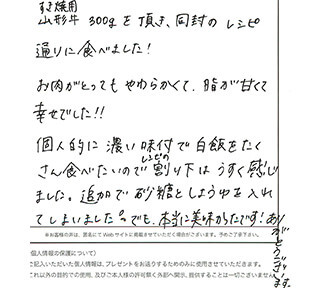 すき焼用
山形牛 300gを頂き、同封のレシピ
通りに食べました!
お肉がとってもやわらかくて、脂が甘くて
幸せでした!!
個人的に濃い味付で白飯をたく
さん食べたいのでレシピの割り下はうすく感じ
ました。追加で砂糖としょうゆを入れ
てしまいました。でも、本当に美味かったです!ありがとうございます。
※お客様の声は、匿名にてWebサイトに掲載させていただく場合がございます。予めご了承下さい。
個人情報の保護について)
ご記入いただいた個人情報は、プレゼントをお送りするためのみに使用させていただきます。
これ以外の目的での使用、及びご本人様の許可無く外部へ開示、提供することは一切ございません。